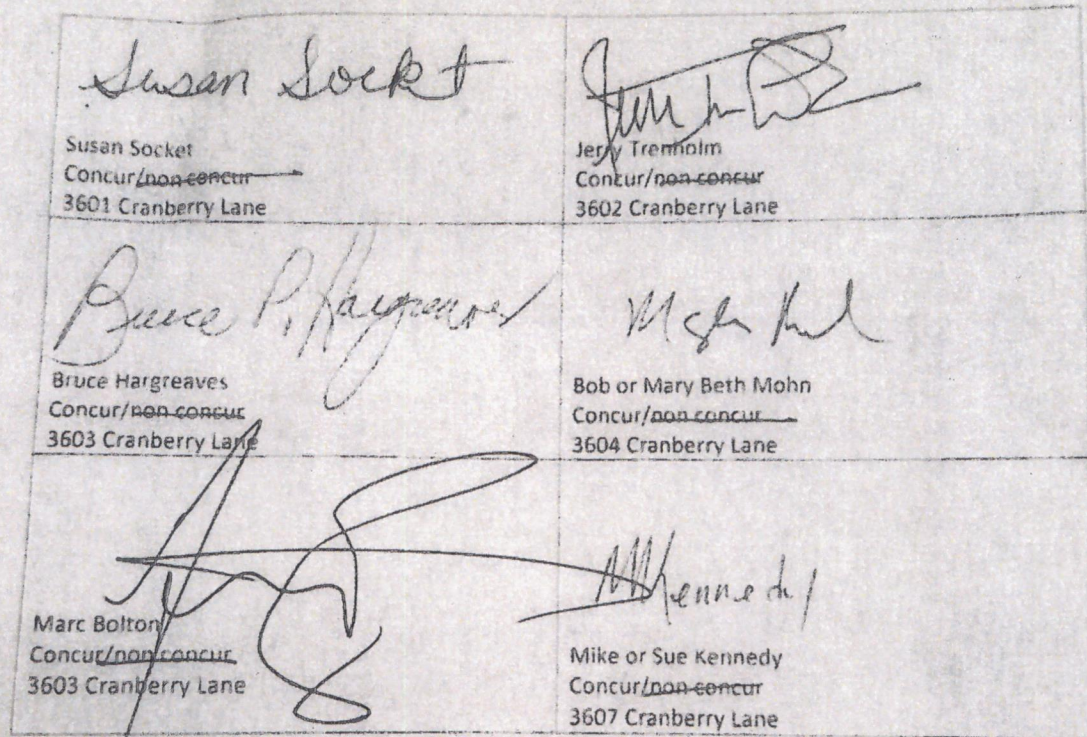 Susan Socket
Susan Socket
Concur/non concur
3601 Cranberry Lane
Jerry Trenholm
Concur/non concur
3602 Cranberry Lane
Bruce P. Hargreaves
Bruce Hargreaves
Concur/non concur
3603 Cranberry Lane
Bob or Mary Beth Mohn
Concur/non concur
3604 Cranberry Lane
Marc Bolton
Concur/non concur
3603 Cranberry Lane
MKennedy
Mike or Sue Kennedy
Concur/non concur
3607 Cranberry Lane